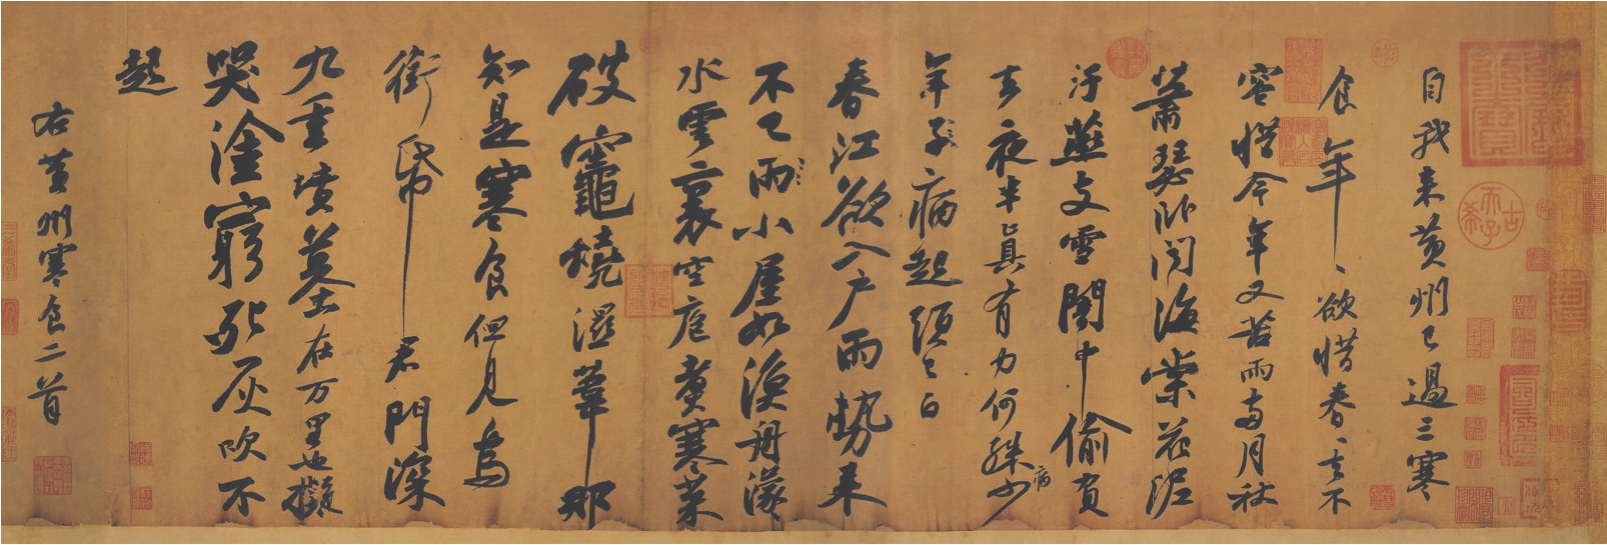 自我來黃州已過三寒
食年、欲惜春〻去不
容惜今年又苦雨兩月秋
蕭瑟臥聞海棠花泥
汙燕支雪闇中偷負
去夜半真有力何殊少
病
年子病起頭已白
春江欲入戶雨勢來
不已雨小屋如漁舟濛〻
水雲裏空庖煮寒菜
破竈燒濕葦那
知是寒食但見烏
銜帋君門深
九重墳墓在万里也擬
哭塗窮死灰吹不
起
右黃州寒食二首
古希天子